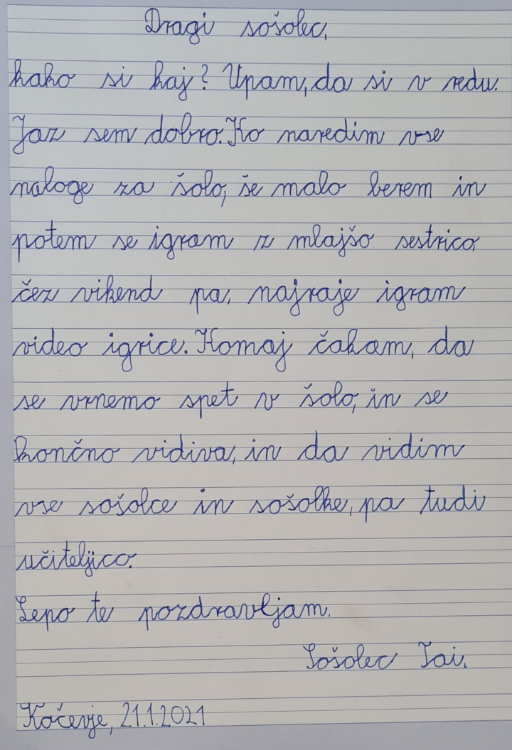 Dragi sošolec,
kako si kaj? Upam, da si v redu.
Jaz sem dobro. Ko naredim vse
naloge za šolo, še malo berem in
potem se igram z mlajšo sestrico,
čez vikend pa, najraje igram
video igrice. Komaj čakam, da
se vrnemo spet v šolo, in se
končno vidiva, in da vidim
vse sošolce in sošolke, pa tudi
učiteljico.
Lepo te pozdravljam.
Sošolec Tai.
Kočevje, 21.1.2021